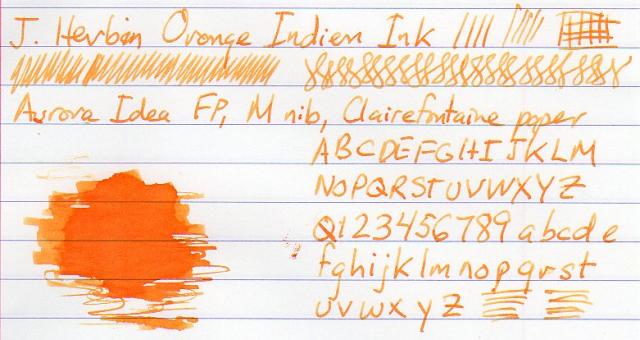 J. Herbin Orange Indien Ink
Aurora Idea FP, M nib, Clairefontaine paper
ABCDEFGHIJKLM
NOPQRSTUVWXYZ
0123456789 abcde
fghijklmnopqrst
uvwxyz